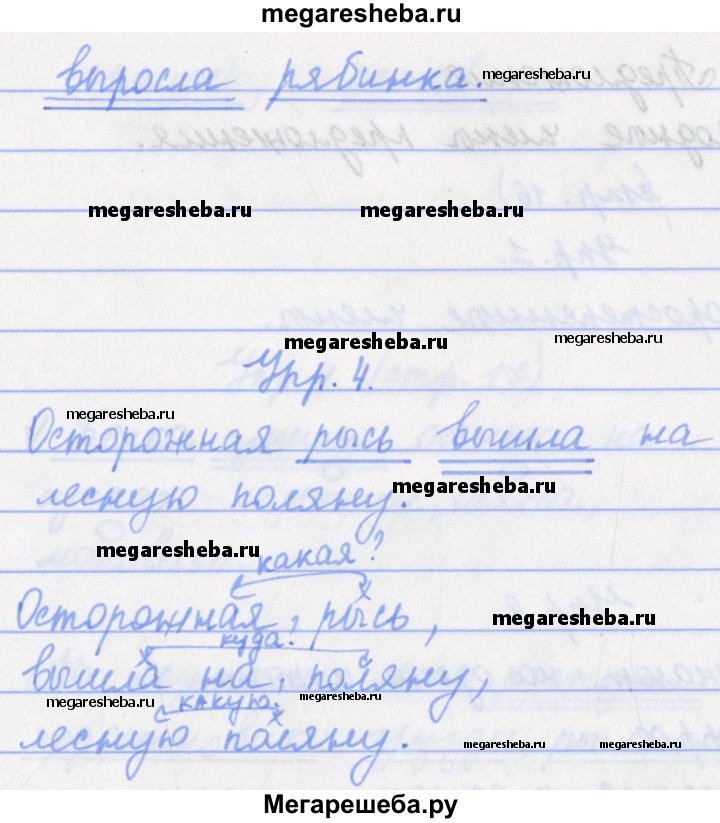 megaresheba.ru
выросла рябинка. megaresheba.ru
megaresheba.ru megaresheba.ru
megaresheba.ru megaresheba.ru
Упр. 4.
megaresheba.ru
Осторожная рысь вышла на
лесную поляну. megaresheba.ru
megaresheba.ru какая?
Осторожная рысь, megaresheba.ru
куда?
вышла на поляну,
megaresheba.ru какую? megaresheba.ru
лесную поляну. megaresheba.ru megaresheba.ru
Мегарешеба.ру